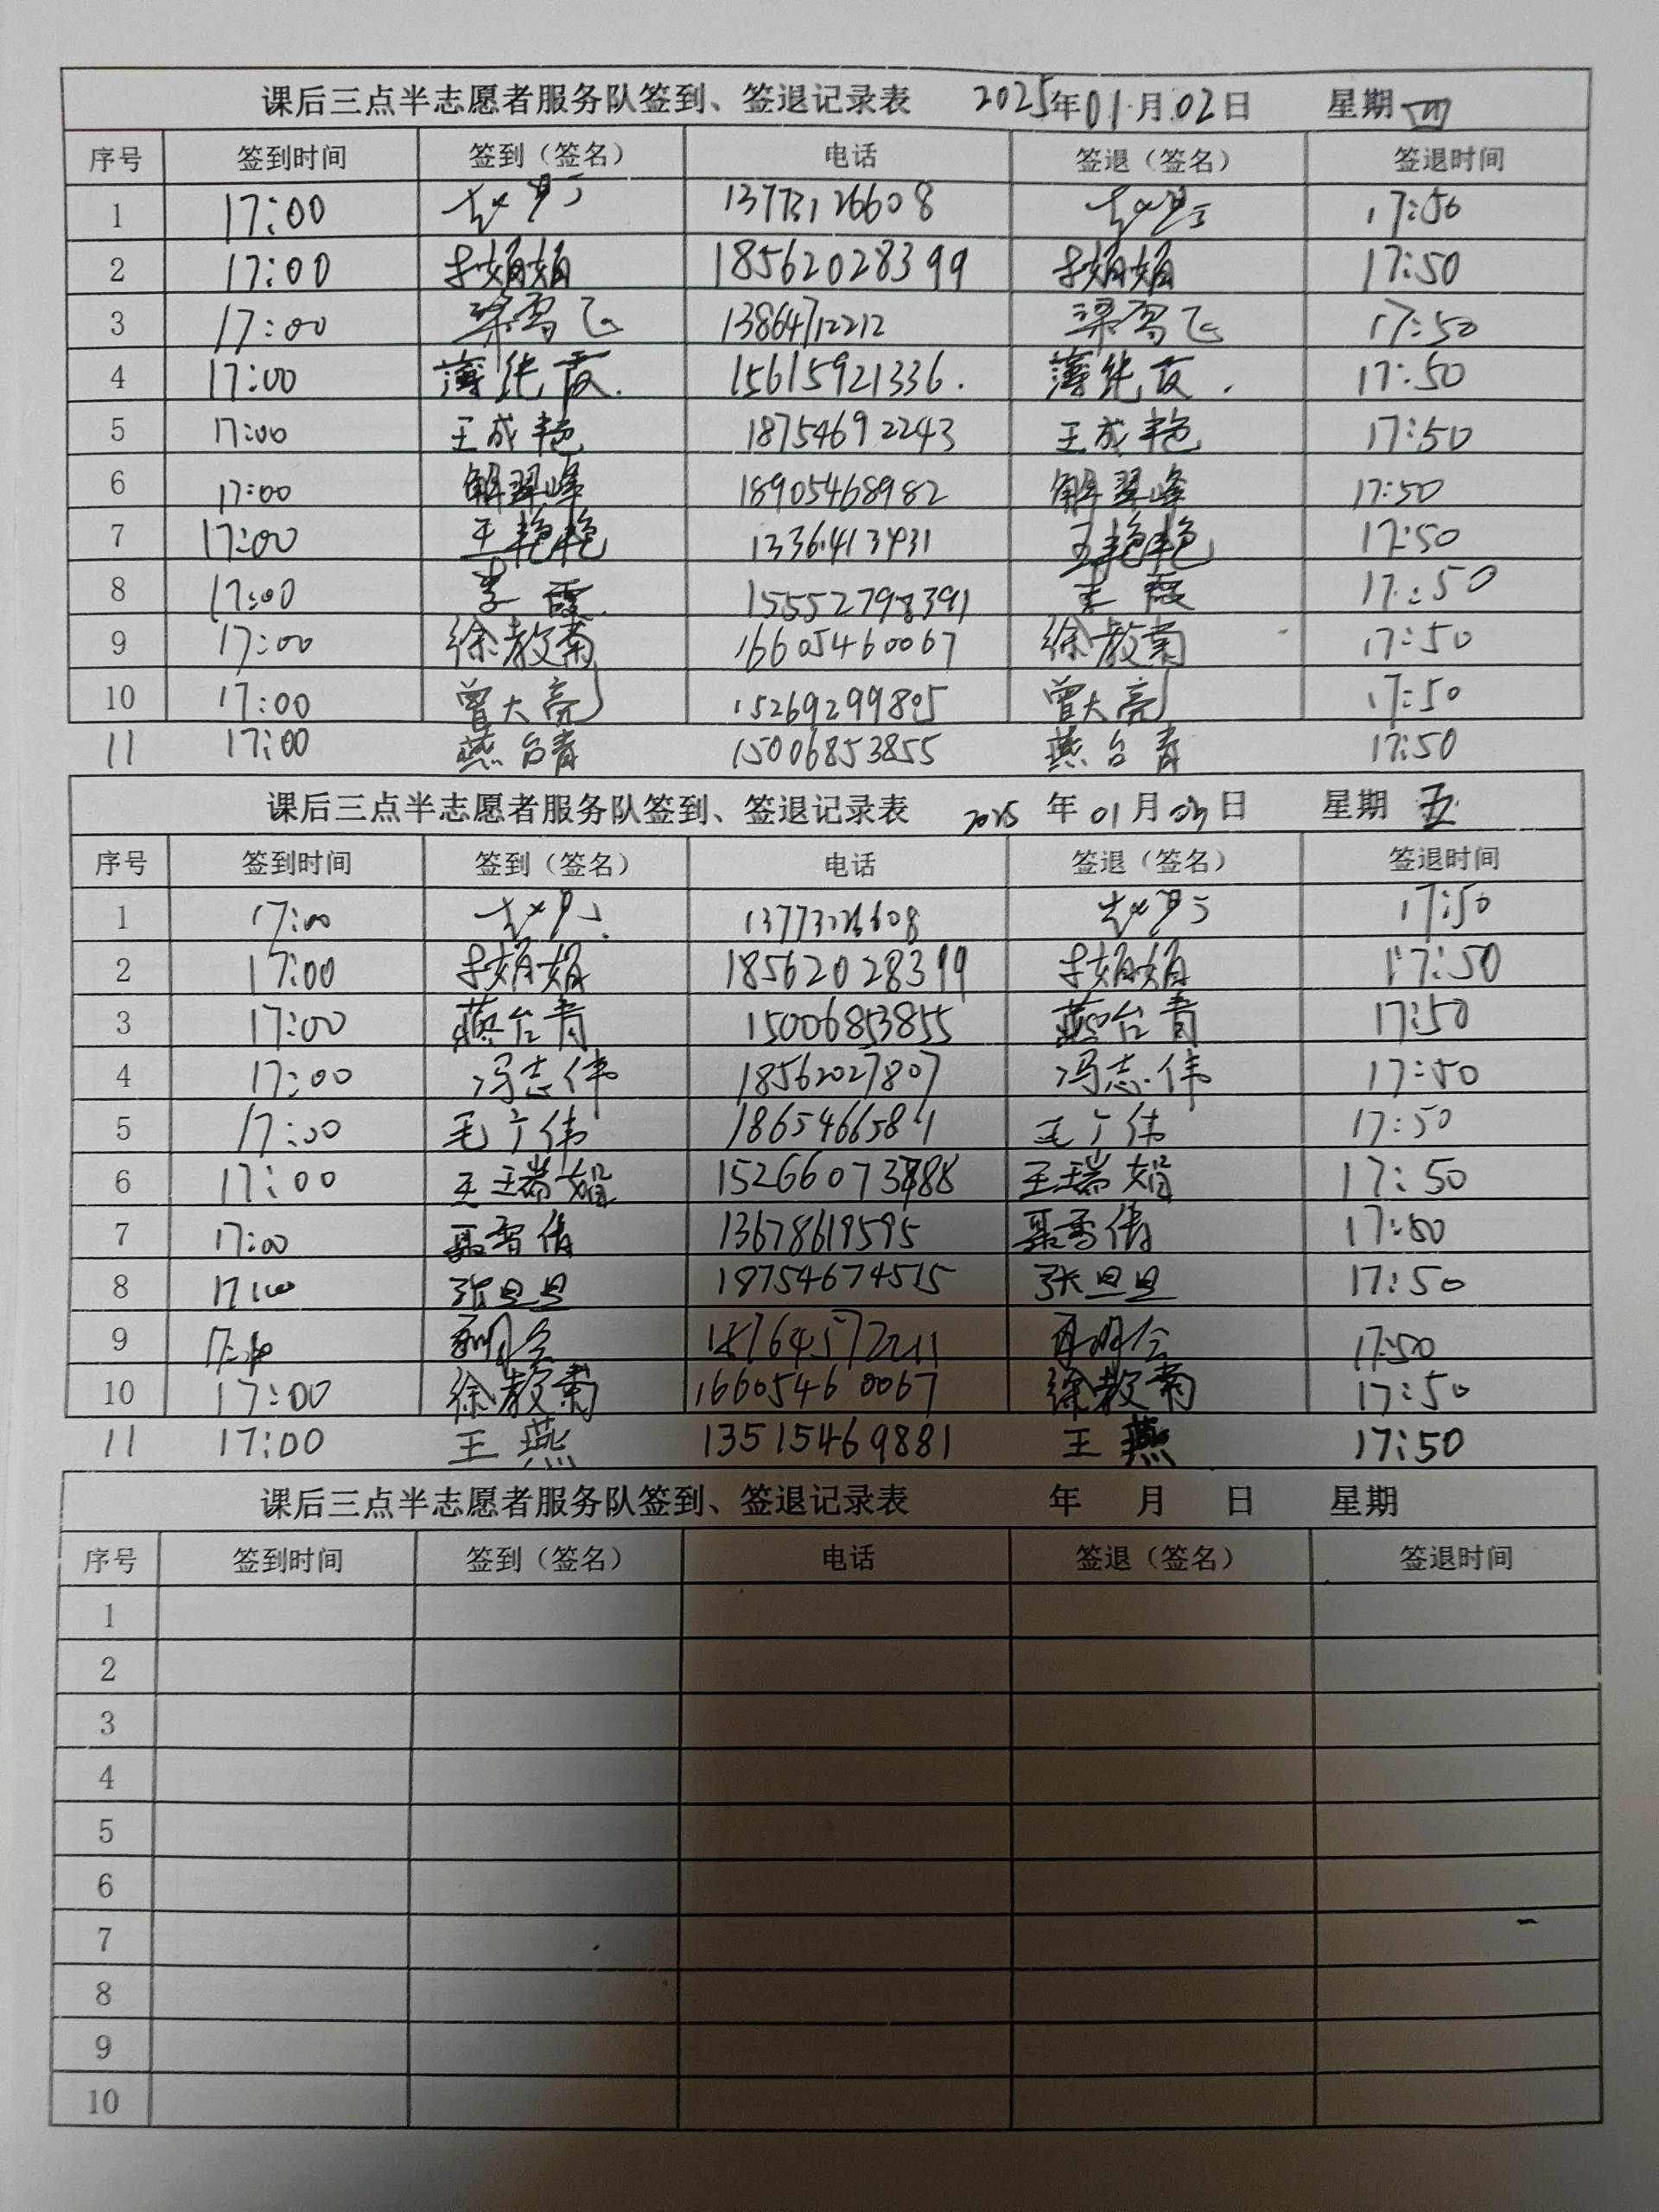 课后三点半志愿者服务队签到、签退记录表 2025年01月02日 星期四
序号 签到时间 签到（签名） 电话 签退（签名） 签退时间
1 17:00 13773126608 17:50
2 17:00 娟娟 18562028399 娟娟 17:50
3 17:00 梁雪飞 13864712212 梁雪飞 17:50
4 17:00 薄纯霞 15615921336. 薄纯霞. 17:50
5 17:00 王成艳 18754692243 王成艳 17:50
6 17:00 解翠峰 18905468982 解翠峰 17:50
7 17:00 王艳艳 13361413431 王艳艳 17:50
8 17:00 李霞. 15552798391 李霞 17:50
9 17:00 徐教菊 16605460067 徐教菊 17:50
10 17:00 曾大亮 15269299805 曾大亮 17:50
11 17:00 燕台青 15006853855 燕台青 17:50
课后三点半志愿者服务队签到、签退记录表 2025年01月03日 星期五
序号 签到时间 签到（签名） 电话 签退（签名） 签退时间
1 17:00 17:50
2 17:00 娟娟 18562028399 娟娟 17:50
3 17:00 燕台青 15006853855 燕台青 17:50
4 17:00 冯志伟 18562027807 冯志伟 17:50
5 17:00 毛广伟 毛广伟 17:50
6 17:00 王瑞娟 王瑞娟 17:50
7 17:00 聂雪倩 13678619595 聂雪倩 17:50
8 17:00 张旦旦 18754674515 张旦旦 17:50
9 17:50
10 17:00 徐教菊 16605460067 徐教菊 17:50
11 17:00 王燕 13515469881 王燕 17:50
课后三点半志愿者服务队签到、签退记录表 年 月 日 星期
序号 签到时间 签到（签名） 电话 签退（签名） 签退时间
1
2
3
4
5
6
7
8
9
10